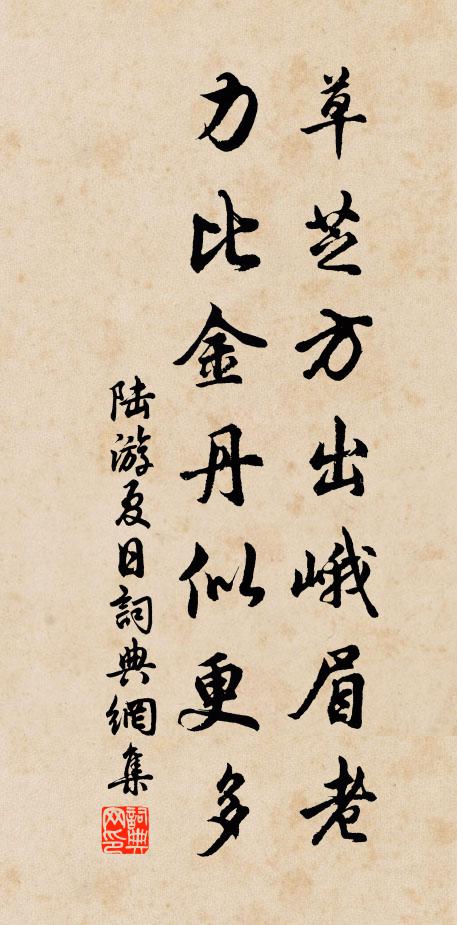 草芝方出峨眉老
力比金丹似更多
陆游夏日詞典網集
詞典网印